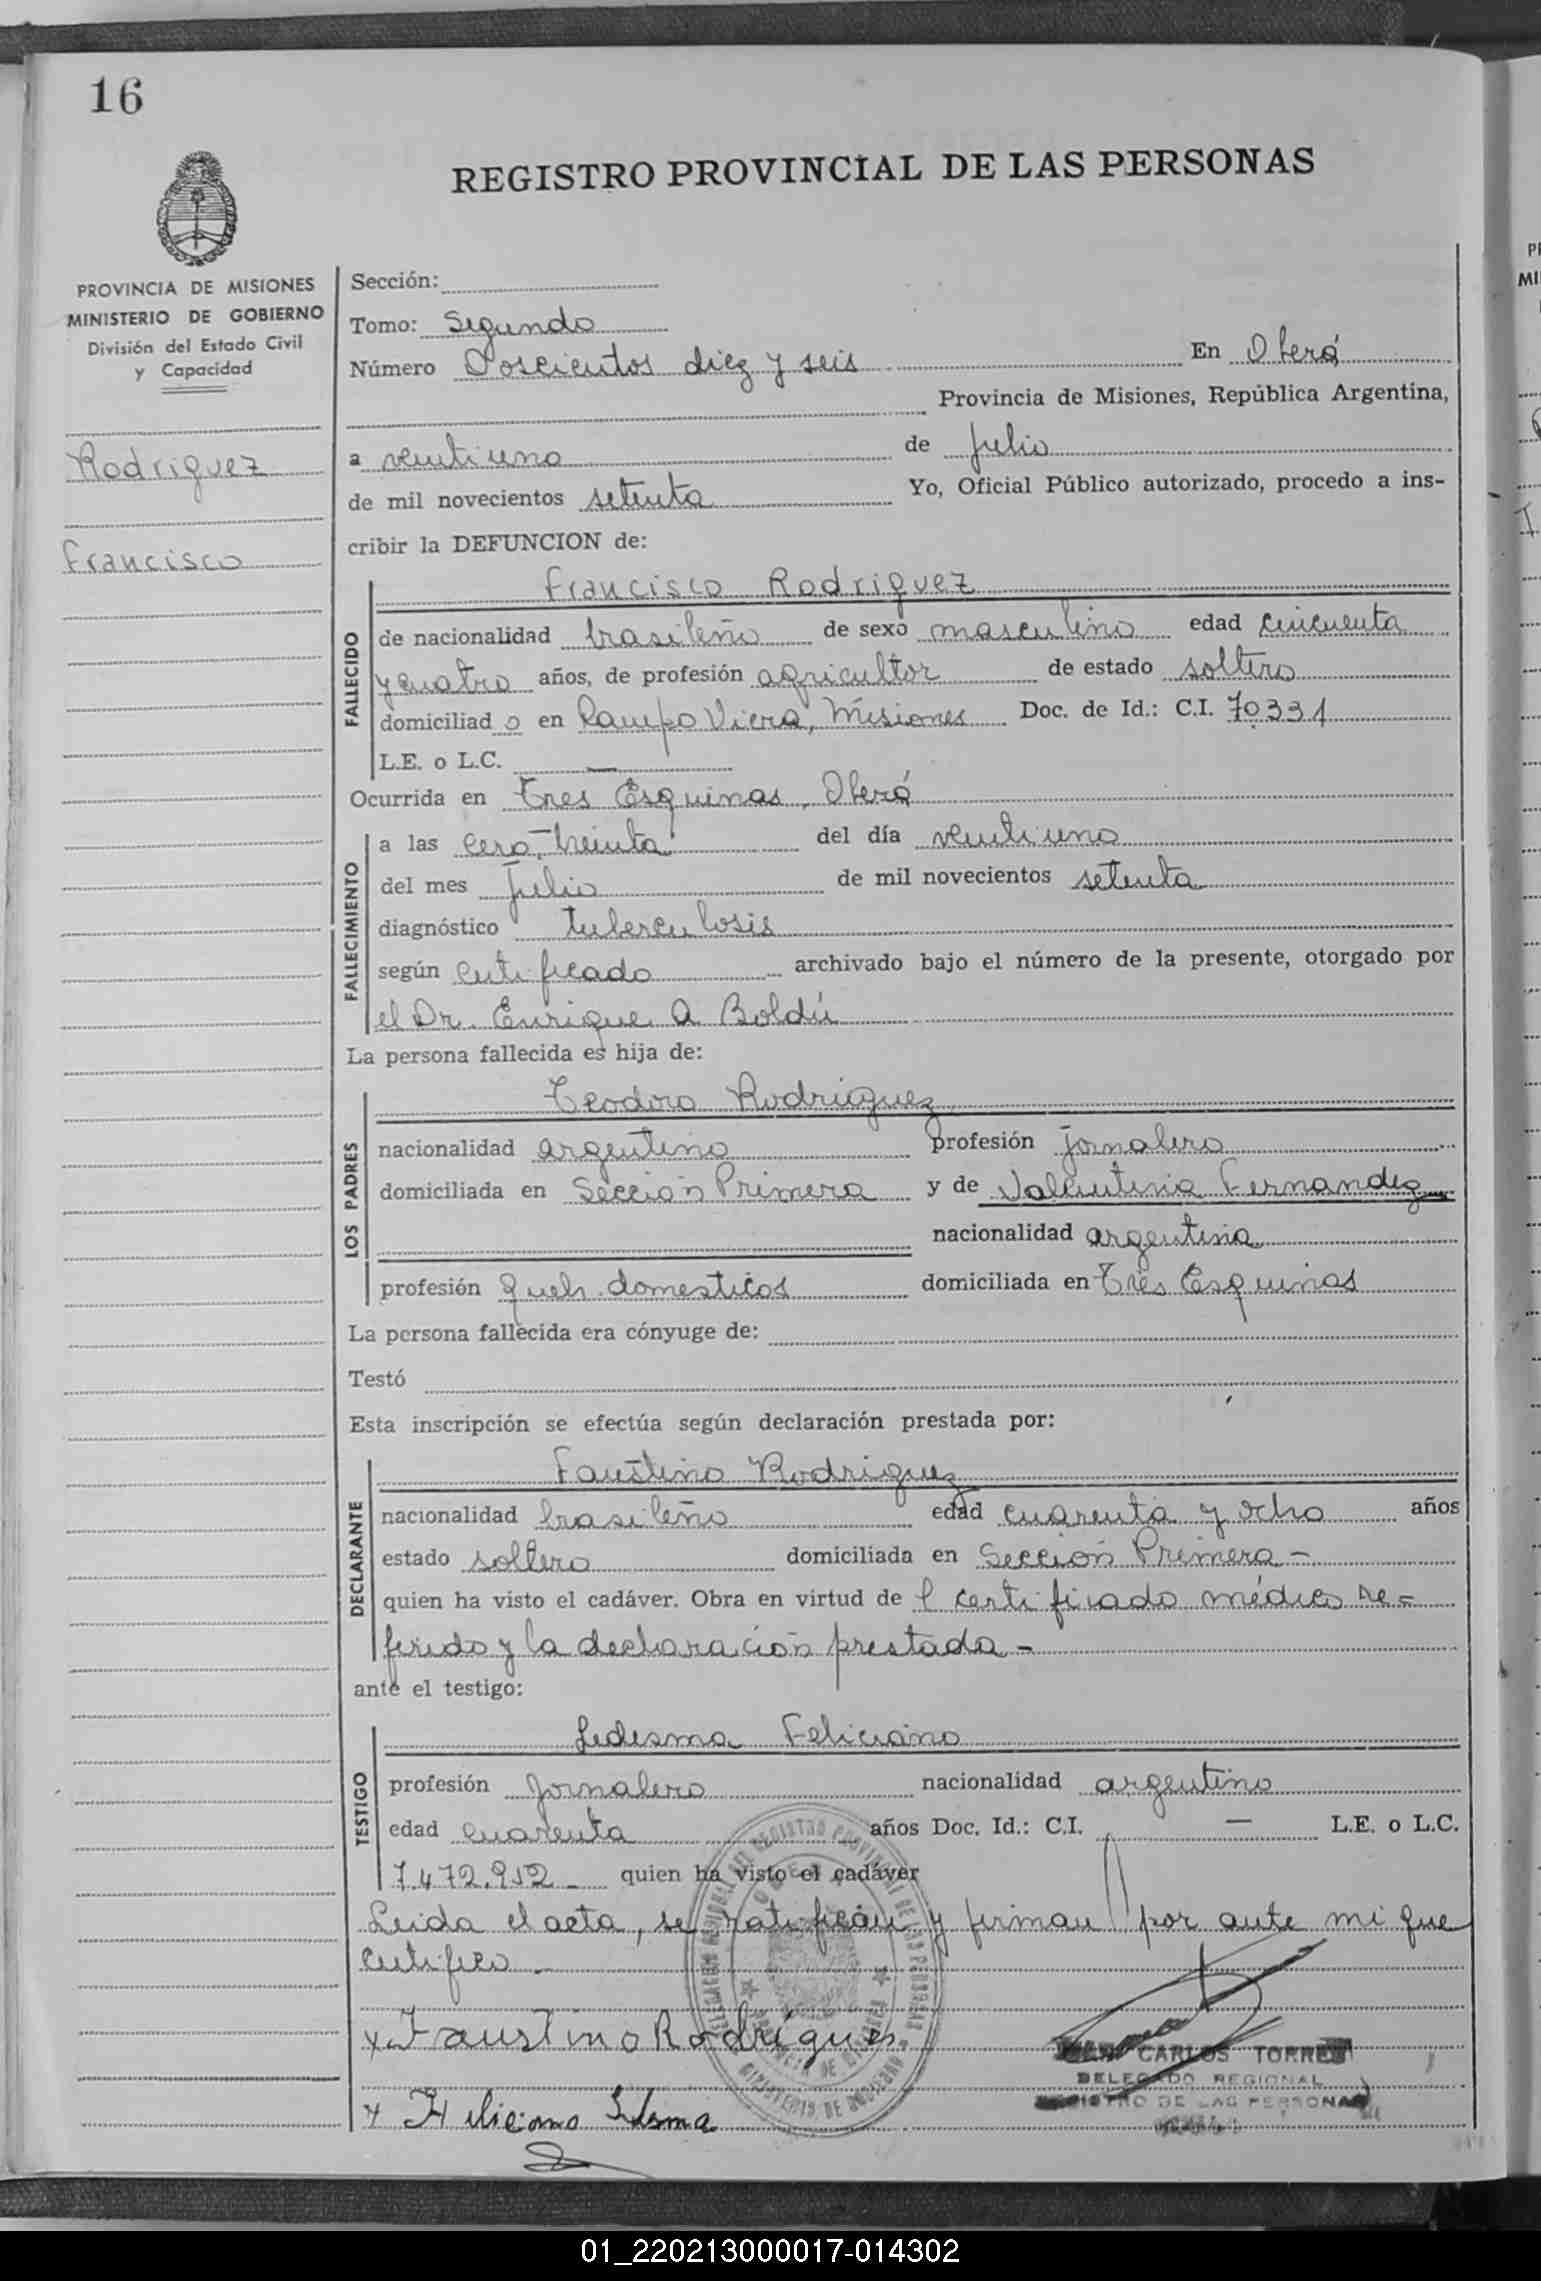 16
REGISTRO PROVINCIAL DE LAS PERSONAS
PROVINCIA DE MISIONES
MINISTERIO DE GOBIERNO
División del Estado Civil
y Capacidad
Rodriguez
Francisco
Sección:
Tomo: Segundo
Número Doscientos diez y seis En Oberá
Provincia de Misiones, República Argentina,
a veintiuno de Julio
de mil novecientos setenta Yo, Oficial Público autorizado, procedo a ins-
cribir la DEFUNCION de:
FALLECIDO
Francisco Rodriguez
de nacionalidad brasileño de sexo masculino edad cincuenta
y cuatro años, de profesión agricultor de estado soltero
domiciliad o en Campo Viera, Misiones Doc. de Id.: C.I. 70331
L.E. o L.C. —
Ocurrida en Tres Esquinas, Oberá
FALLECIMIENTO
a las cero, treinta del día veintiuno
del mes Julio de mil novecientos setenta
diagnóstico tuberculosis
según certificado archivado bajo el número de la presente, otorgado por
el Dr. Enrique A Boldú
La persona fallecida es hija de:
LOS PADRES
Teodoro Rodriguez
nacionalidad argentino profesión jornalero
domiciliada en Sección Primera y de Valentina Fernandez
nacionalidad argentina
profesión queh. domesticos domiciliada en Tres Esquinas
La persona fallecida era cónyuge de:
Testó
Esta inscripción se efectúa según declaración prestada por:
DECLARANTE
Faustino Rodriguez
nacionalidad brasileño edad cuarenta y ocho años
estado soltero domiciliada en Sección Primera -
quien ha visto el cadáver. Obra en virtud de l certificado médico re=
ferido y la declaración prestada -
ante el testigo:
TESTIGO
Ledesma Feliciano
profesión Jornalero nacionalidad argentino
edad cuarenta años Doc. Id.: C.I. — L.E. o L.C.
7.472.912 - quien ha visto el cadáver
Leida el acta, se ratifican y firman por ante mi que
certifico -
x Faustino Rodrigues
x Feliciano Ledesma
CARLOS TORRES
DELEGADO REGIONAL
REGISTRO DE LAS PERSONAS
01_220213000017-014302